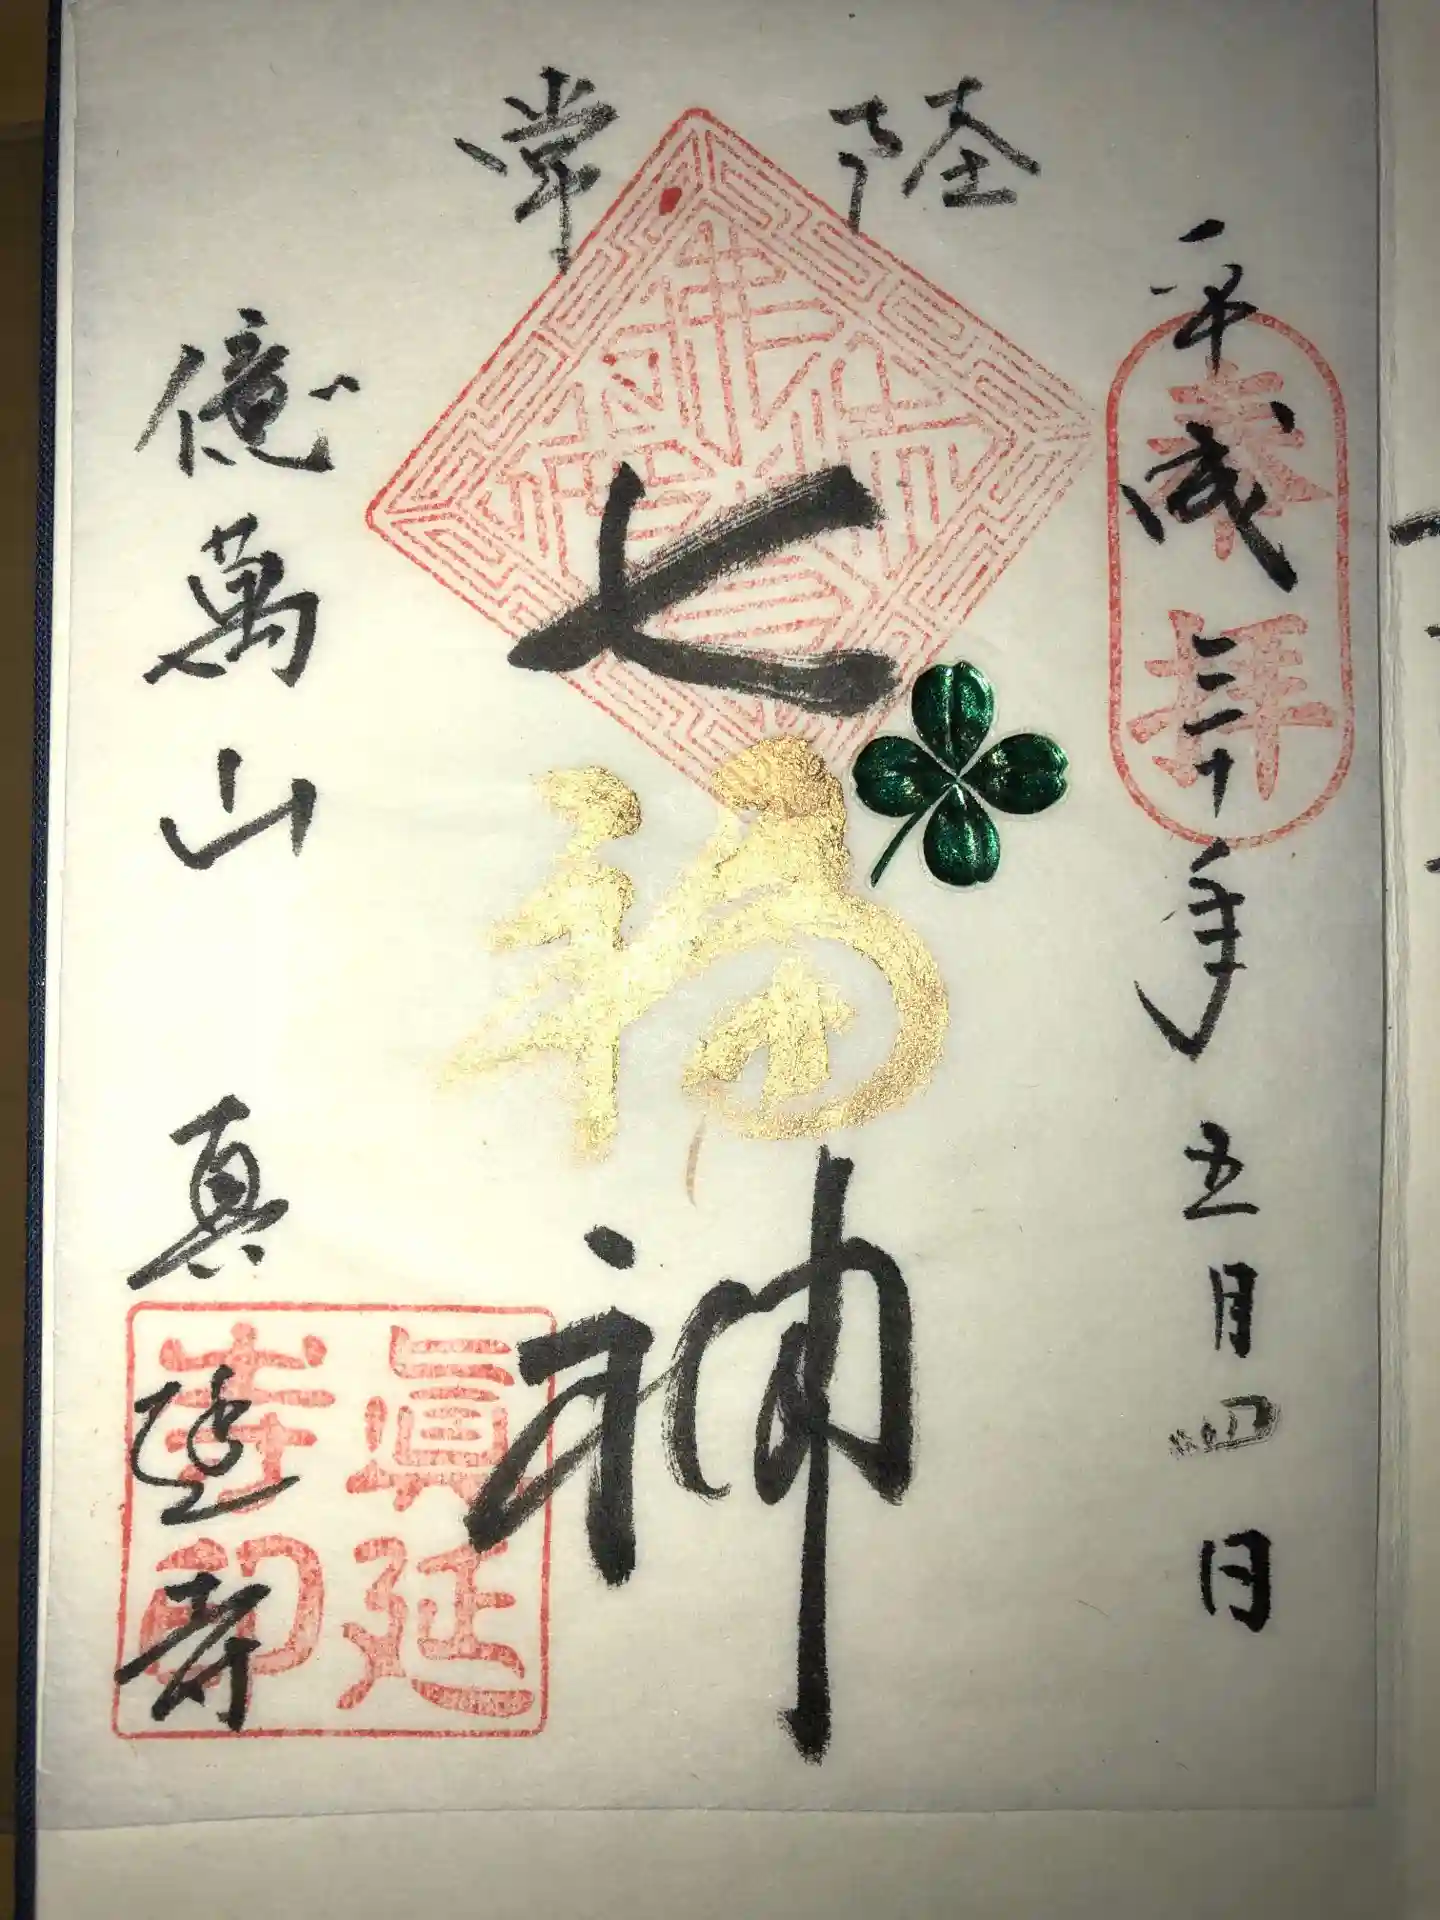 常陸
平成三十年五月四日
奉拝
七福神
億萬山 真延寿
眞延
寺印